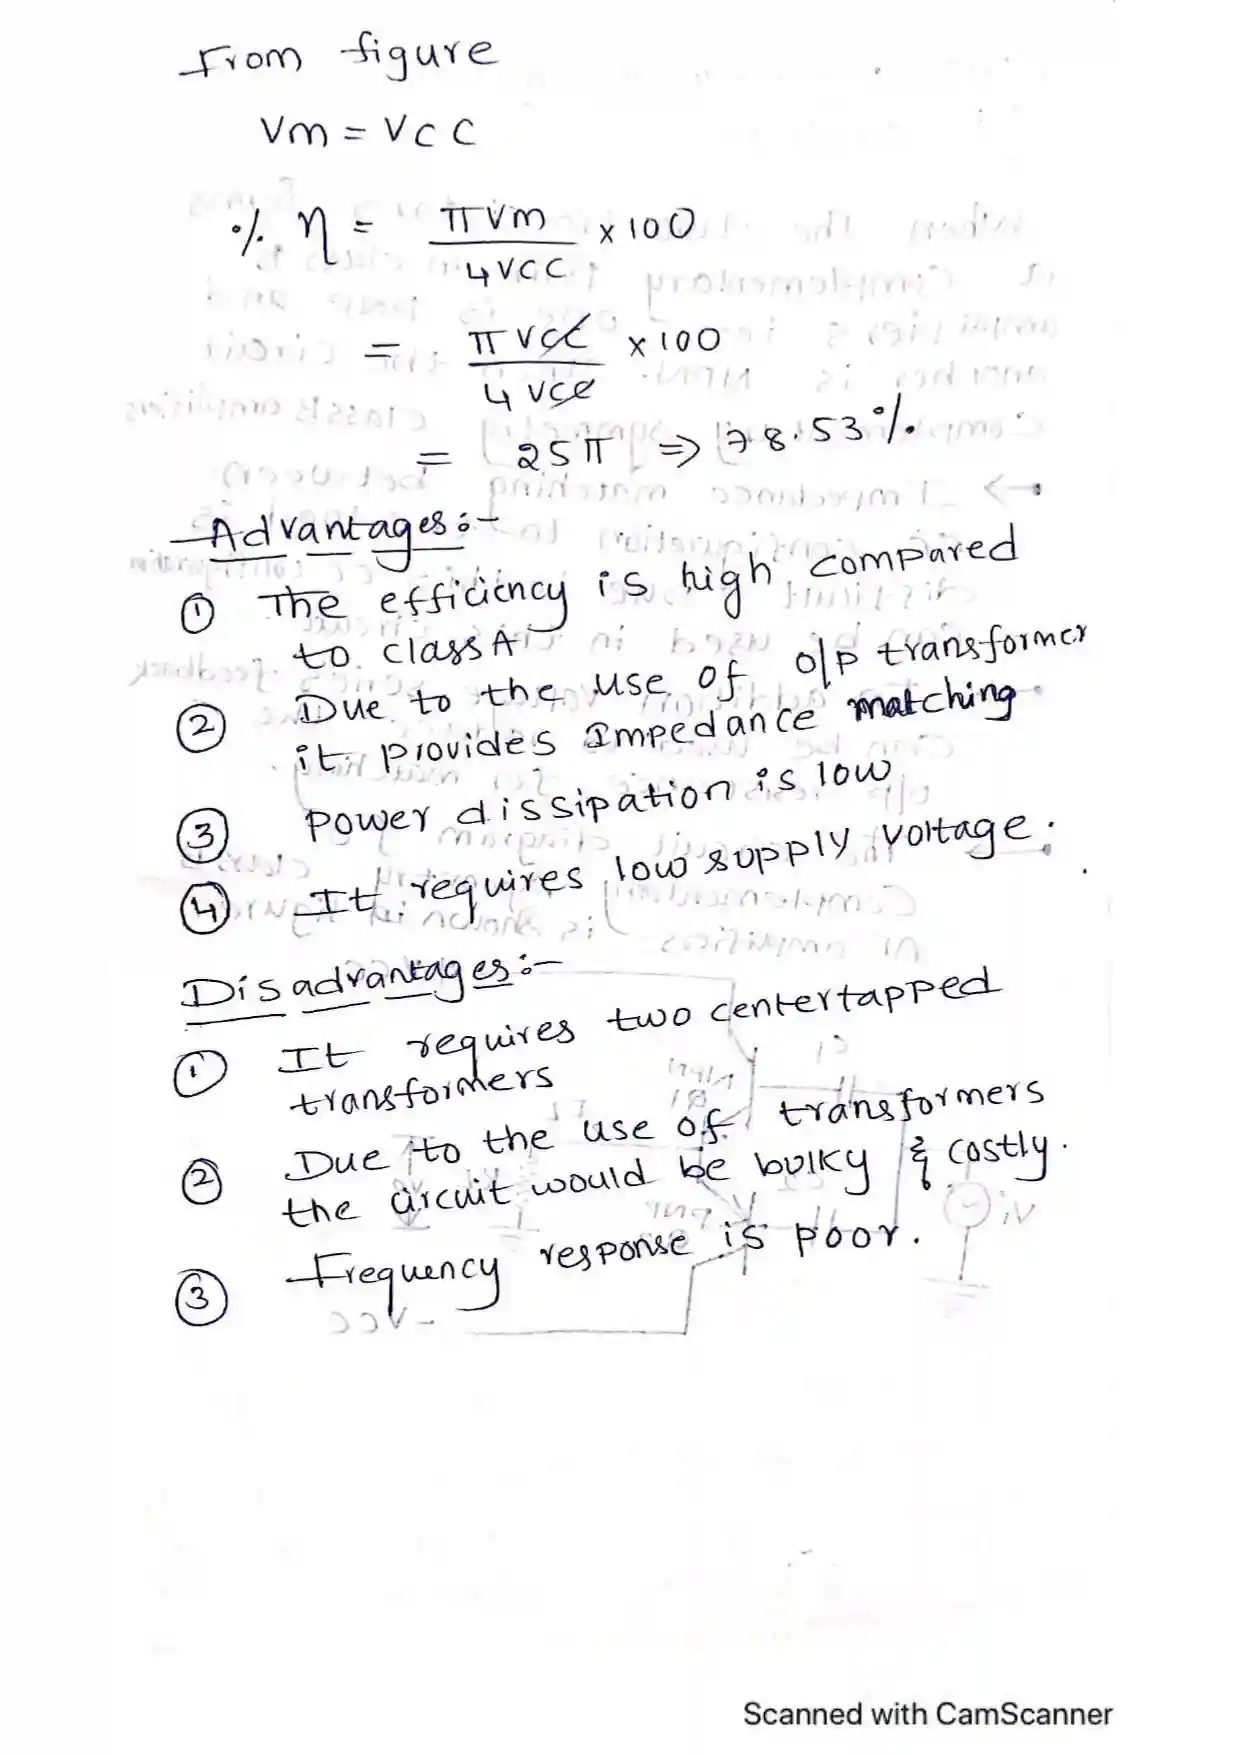 From figure
Vm = VCC
% η = πVm / 4VCC × 100
= πVCC / 4VCC × 100
= 25π ⇒ 78.53%
Advantages:-
① The efficiency is high compared
to class A
② Due to the use of o/p transformer
it provides Impedance matching
③ Power dissipation is low
④ It requires low supply voltage.
Disadvantages:-
① It requires two centertapped
transformers
② Due to the use of transformers
the circuit would be bulky & costly.
③ Frequency response is poor.
Scanned with CamScanner